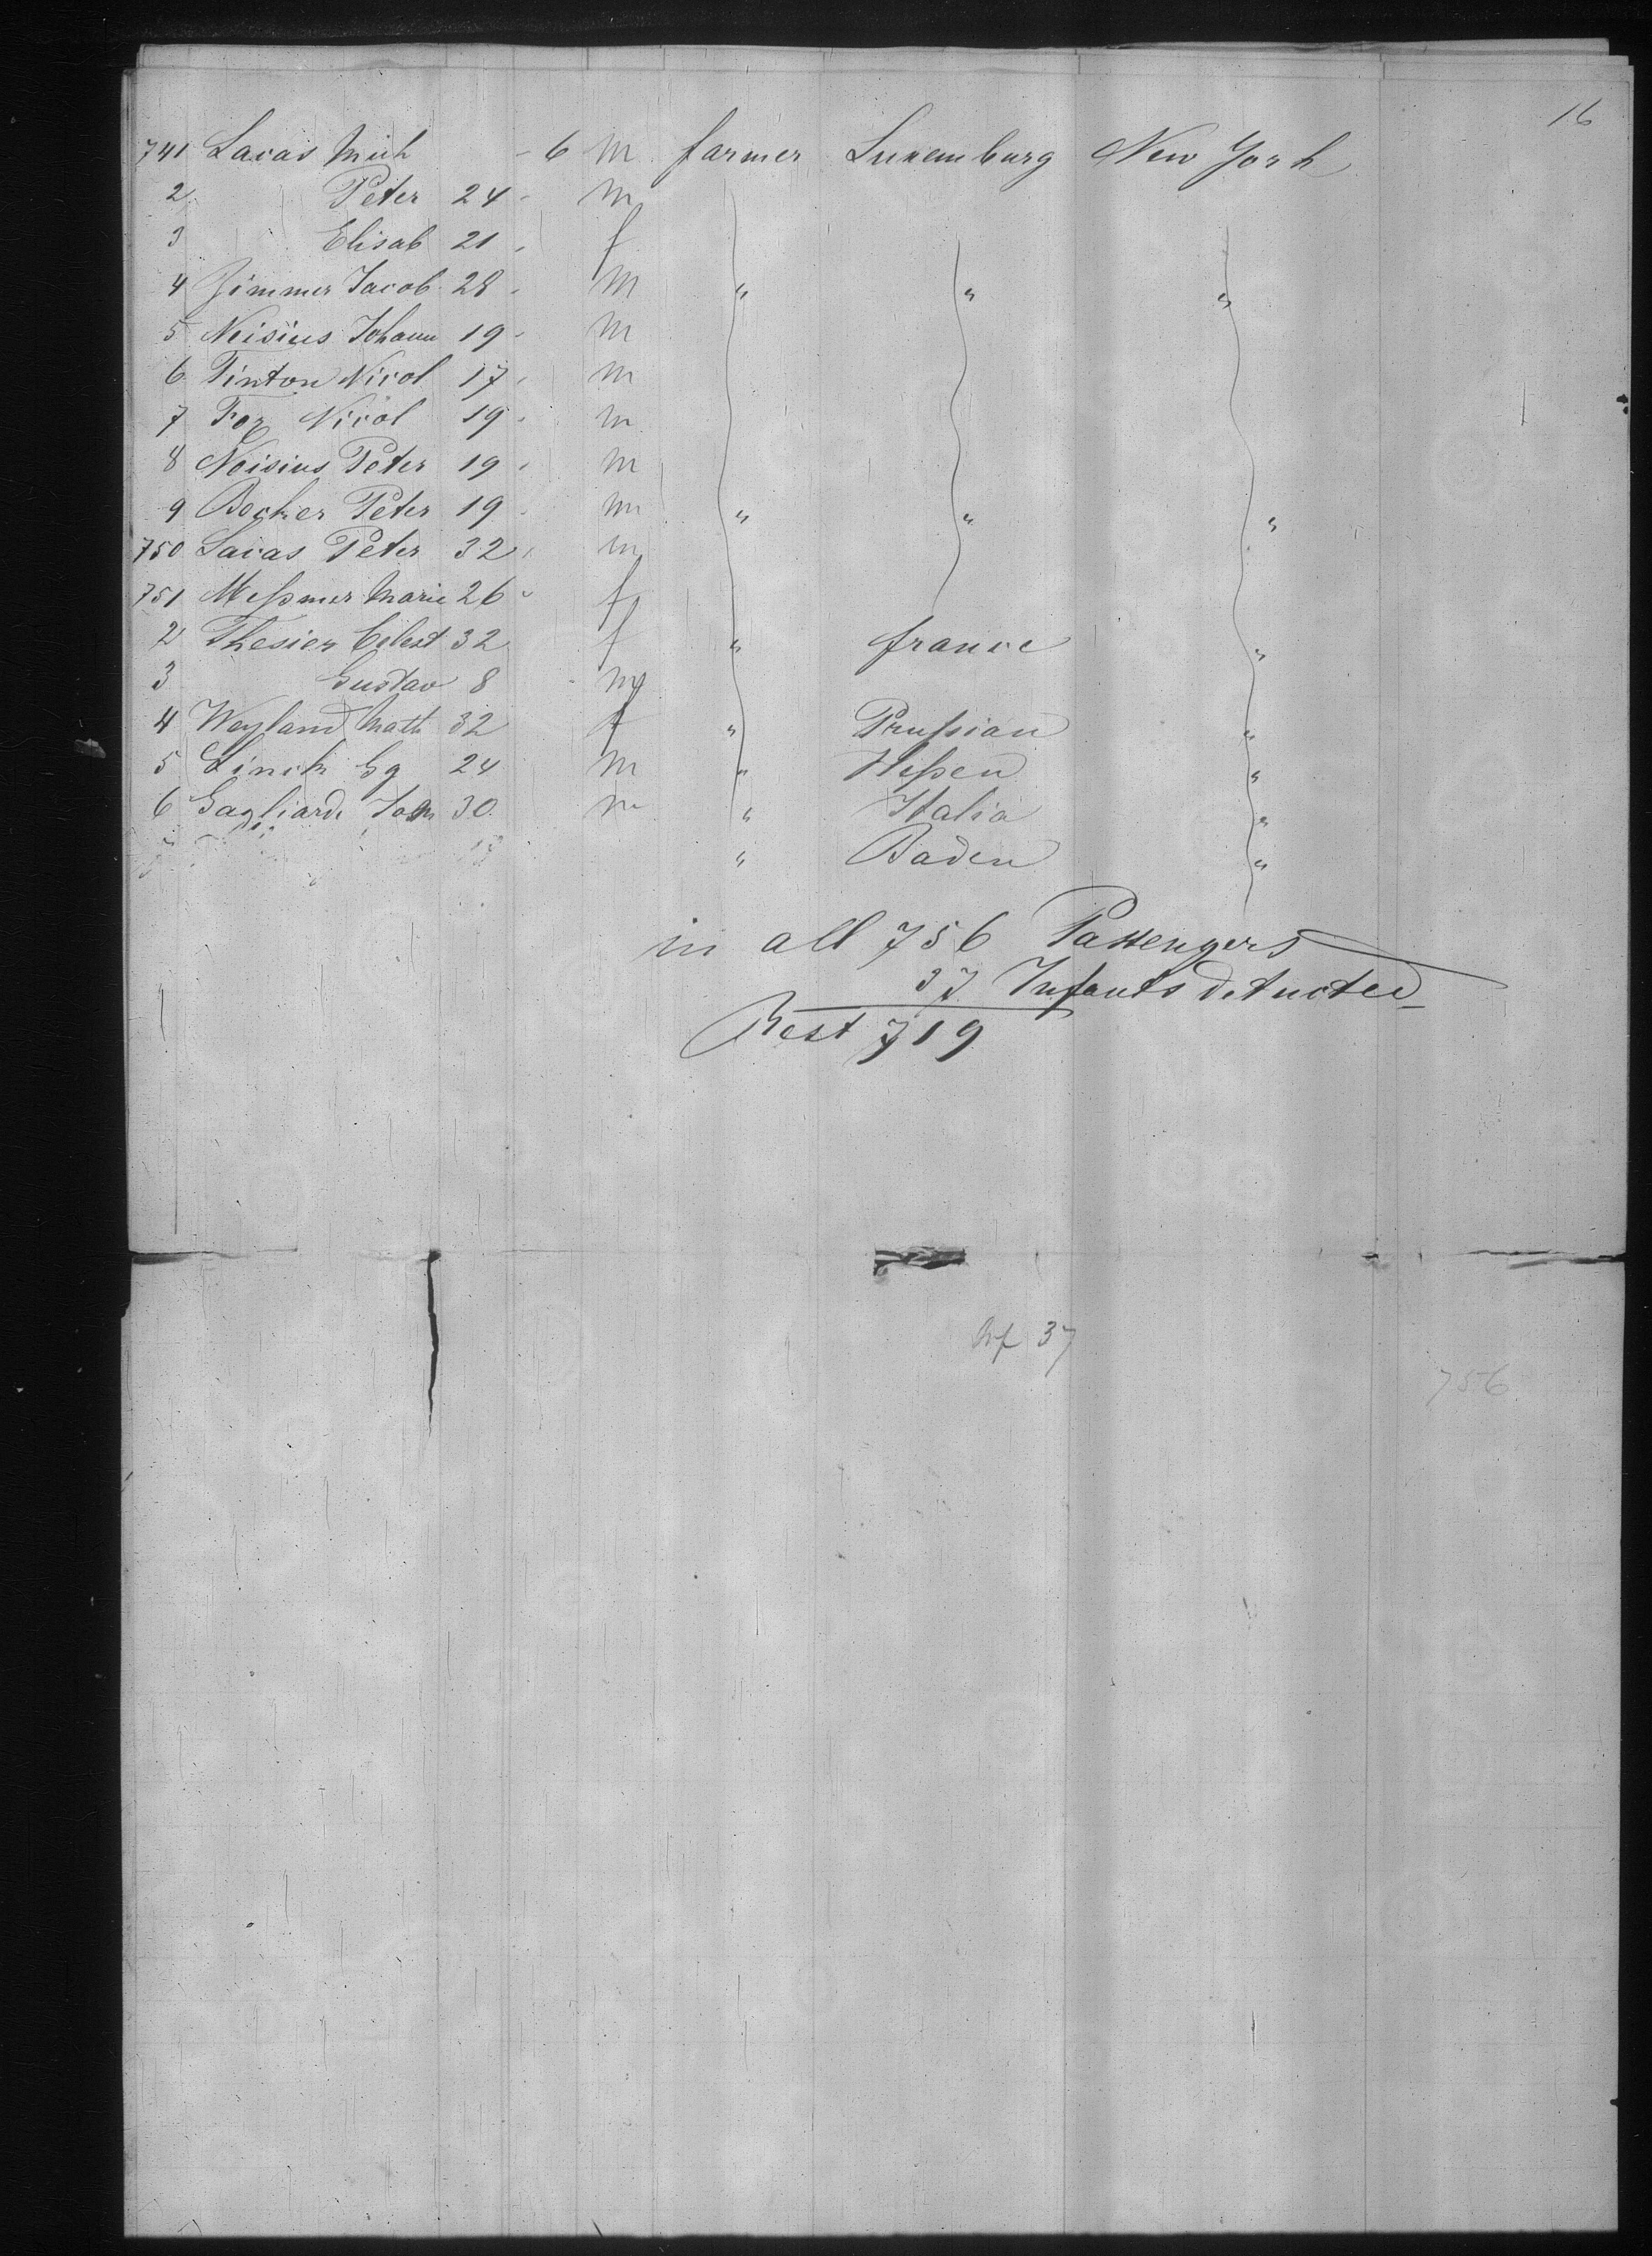 16
741 Lacas Mich - 6 m farmer Luxemburg New York
2 Peter 24 - m
3 Elisab 21 - f
4 Zimmer Jacob 28 - m " " "
5 Neisius Johann 19 - m
6 Tinton Nicol 17 - m
7 Nicol 19 - m
8 Neisius Peter 19 - m
9 Becker Peter 19 - m " " "
750 Lacas Peter 32 - m
751 Meßmer Marie 26 - f
2 Thesier Celest 32 f " france "
3 Gustav 8 - m
4 Weyland Math 32 f " Prußian "
5 Linck Gg 24 m " Heßen "
6 Gagliardi 30 m " Italia "
" Baden "
in all 756 Passengers
37 Infants detucted
Rest 719
Inf 37
756